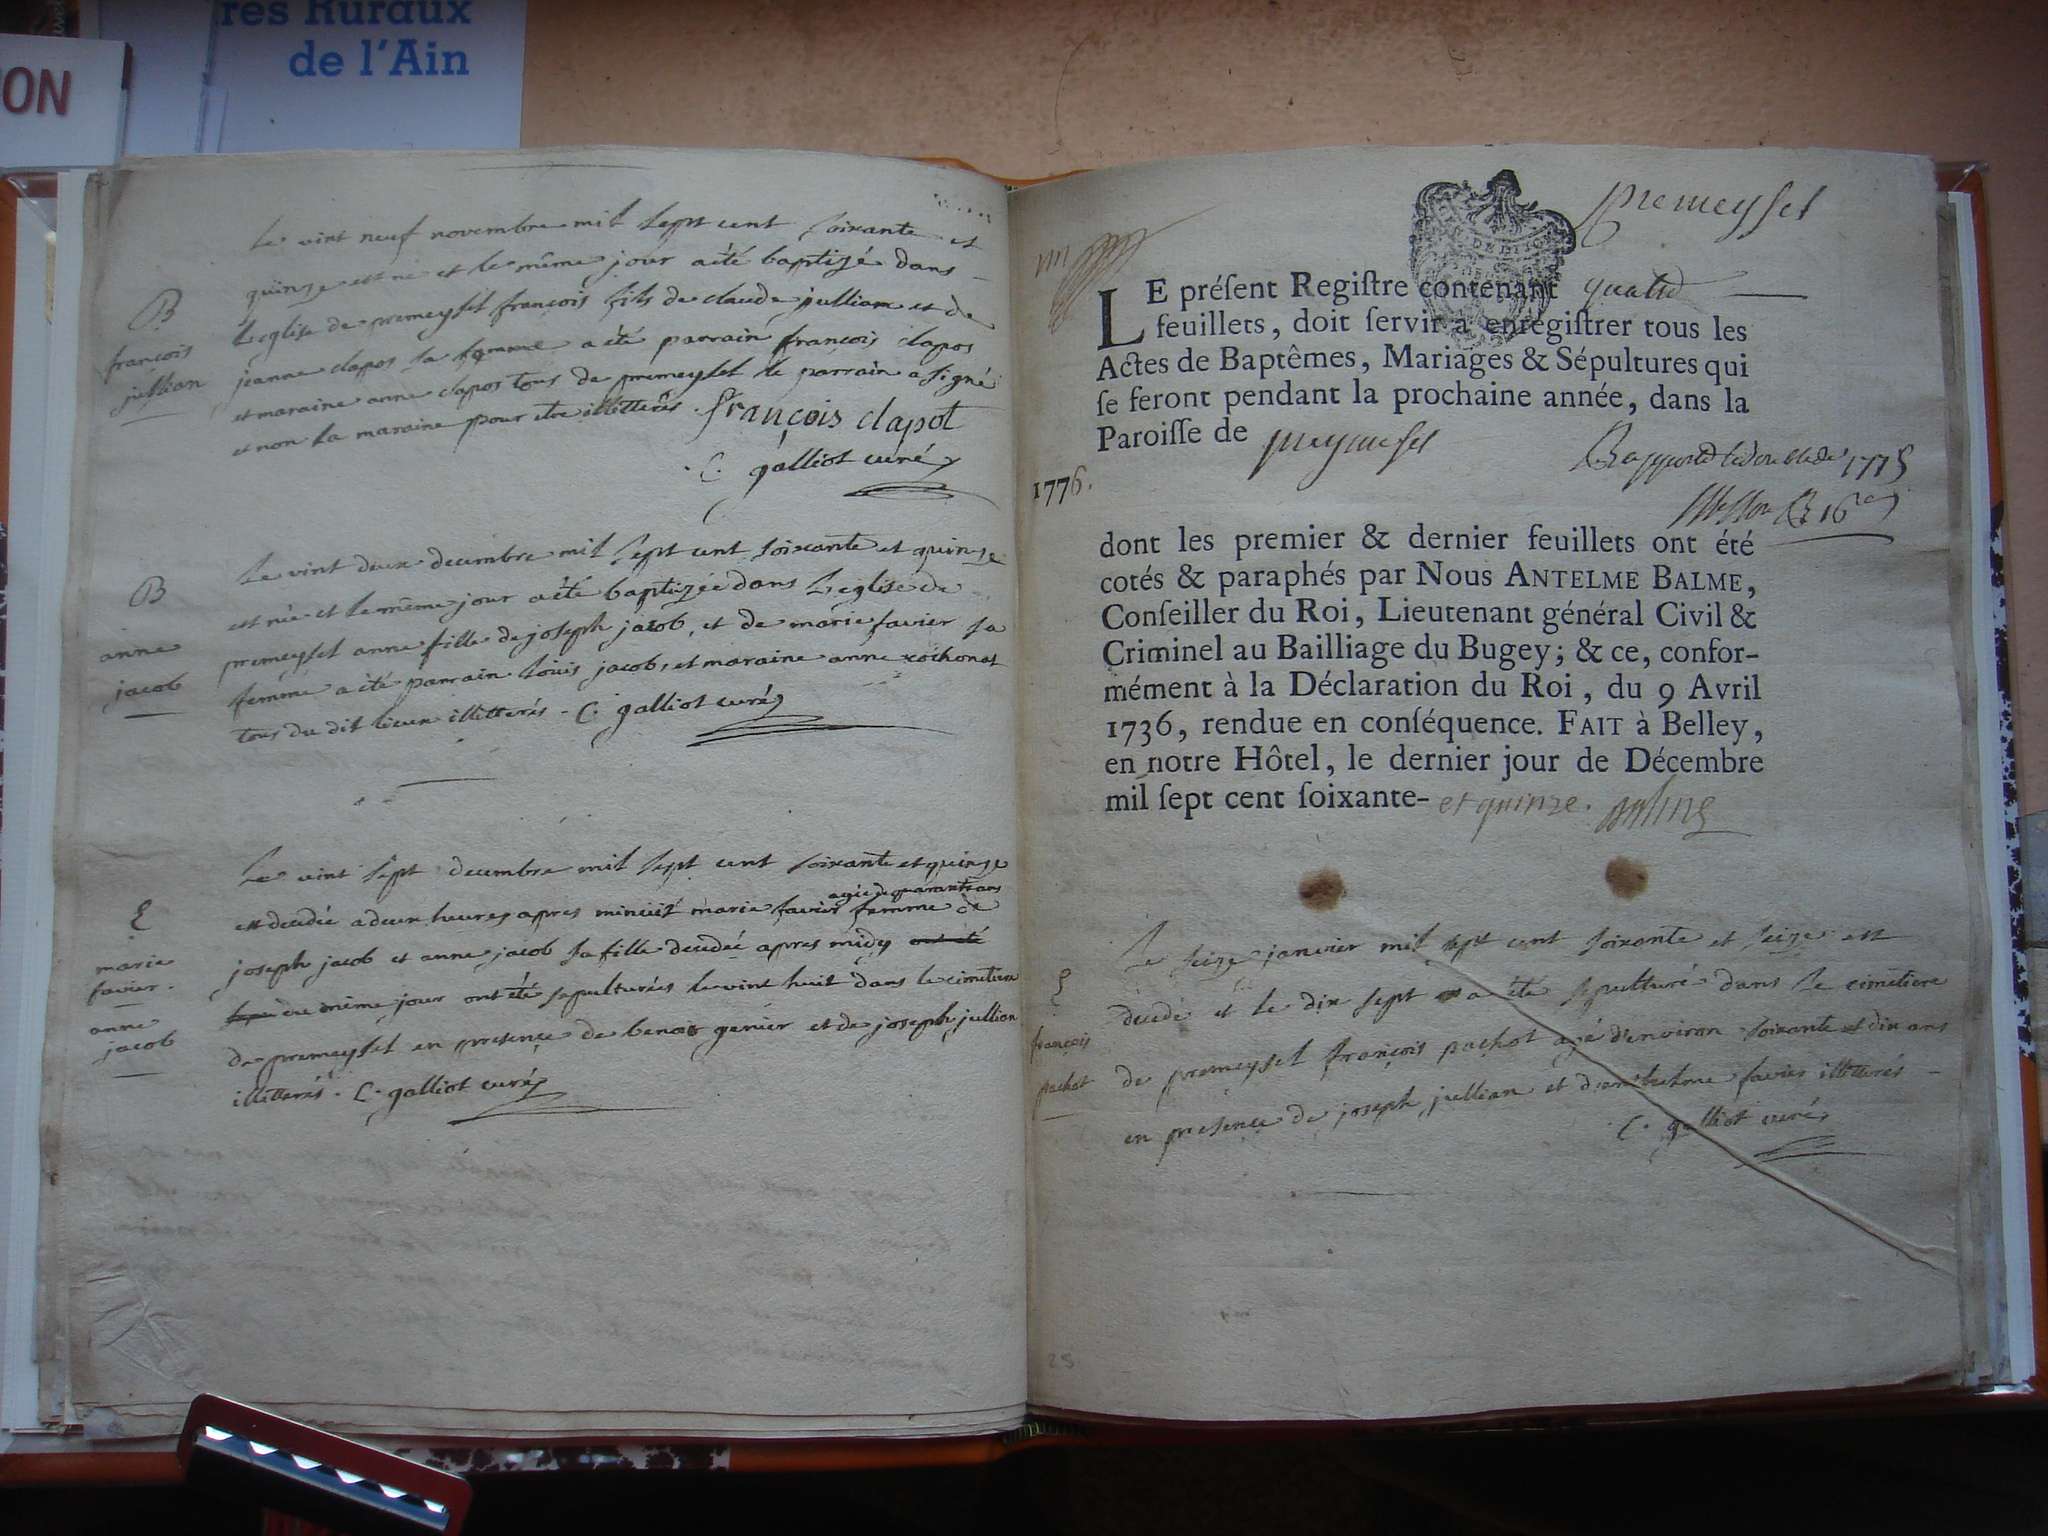 res Ruraux
de l'Ain
ON
Le vint neuf novembre mil sept cent soixante et
quinze est né et le même jour a été baptizé dans
L'eglise de premeysel françois fils de claude jullian et de
jeanne clapos sa femme a été parrain françois clapos
et maraine anne clapos tous de premeysel le parrain a signé
et non la maraine pour etre illitterés. françois clapot
C. galliot curé
B
françois
jullian
Le vint deux decembre mil sept cent soixante et quinze
est née et le même jour a été baptizée dans L'eglise de
premeysel anne fille de joseph jacob, et de marie favier sa
femme a été parrain Louis jacob, et maraine anne
tous du dit lieux illitterés - C. galliot curé
B
anne
jacob
Le vint sept decembre mil sept cent soixante et quinze
agée de quarante ans
est decedée a deux heures apres minuit marie favier femme de
joseph jacob et anne jacob sa fille decedeé apres midy ont été
du même jour ont été sepulturées le vint huit dans le cimetiere
de premeysel en presence de benoit genier et de joseph jullian
illitterés. C. galliot curé
marie
favier.
anne
jacob
premeysel
LE préſent Regiſtre contenant quatre
feuillets, doit ſervir à enregiſtrer tous les
Actes de Baptêmes, Mariages & Sépultures qui
ſe feront pendant la prochaine année, dans la
Paroiſſe de
Rapporté le double de 1775
1776.
dont les premier & dernier feuillets ont été
cotés & paraphés par Nous ANTELME BALME,
Conſeiller du Roi, Lieutenant général Civil &
Criminel au Bailliage du Bugey; & ce, confor-
mément à la Déclaration du Roi, du 9 Avril
1736, rendue en conſéquence. FAIT à Belley,
en notre Hôtel, le dernier jour de Décembre
mil ſept cent ſoixante- et quinze.
Le seize janvier mil sept cent soixante et seize est
decedé et le dix sept a été sepulturé dans le cimetiere
de premeysel françois pachot agé d'environ soixante et dix ans
en presence de joseph jullian et d'anthelme favier illitterés
C. galliot curé
françois
pachot
25